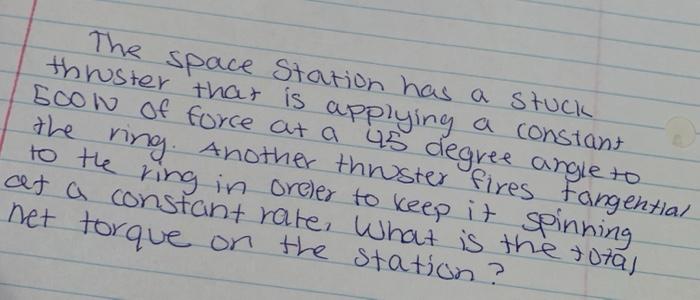 The space Station has a stuck
thruster that is applying a constant
500N of force at a 45 degree angle to
the ring. Another thruster fires tangential
to the ring in order to keep it spinning
at a constant rate, What is the total
net torque on the station?